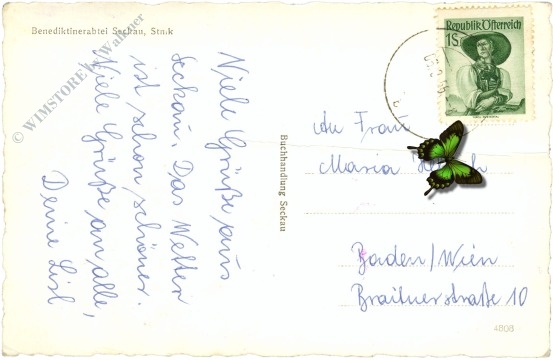 Benediktinerabtei Seckau, Stmk
© WIMSTORE / Wallner
Viele Grüße aus
Seckau. Das Wetter
ist schon schöner.
Viele Grüße an alle,
Deine Lisl
Buchhandlung Seckau
Republik Österreich
1S
An Frau
Maria
Baden/Wien
Braitnerstraße 10
4808